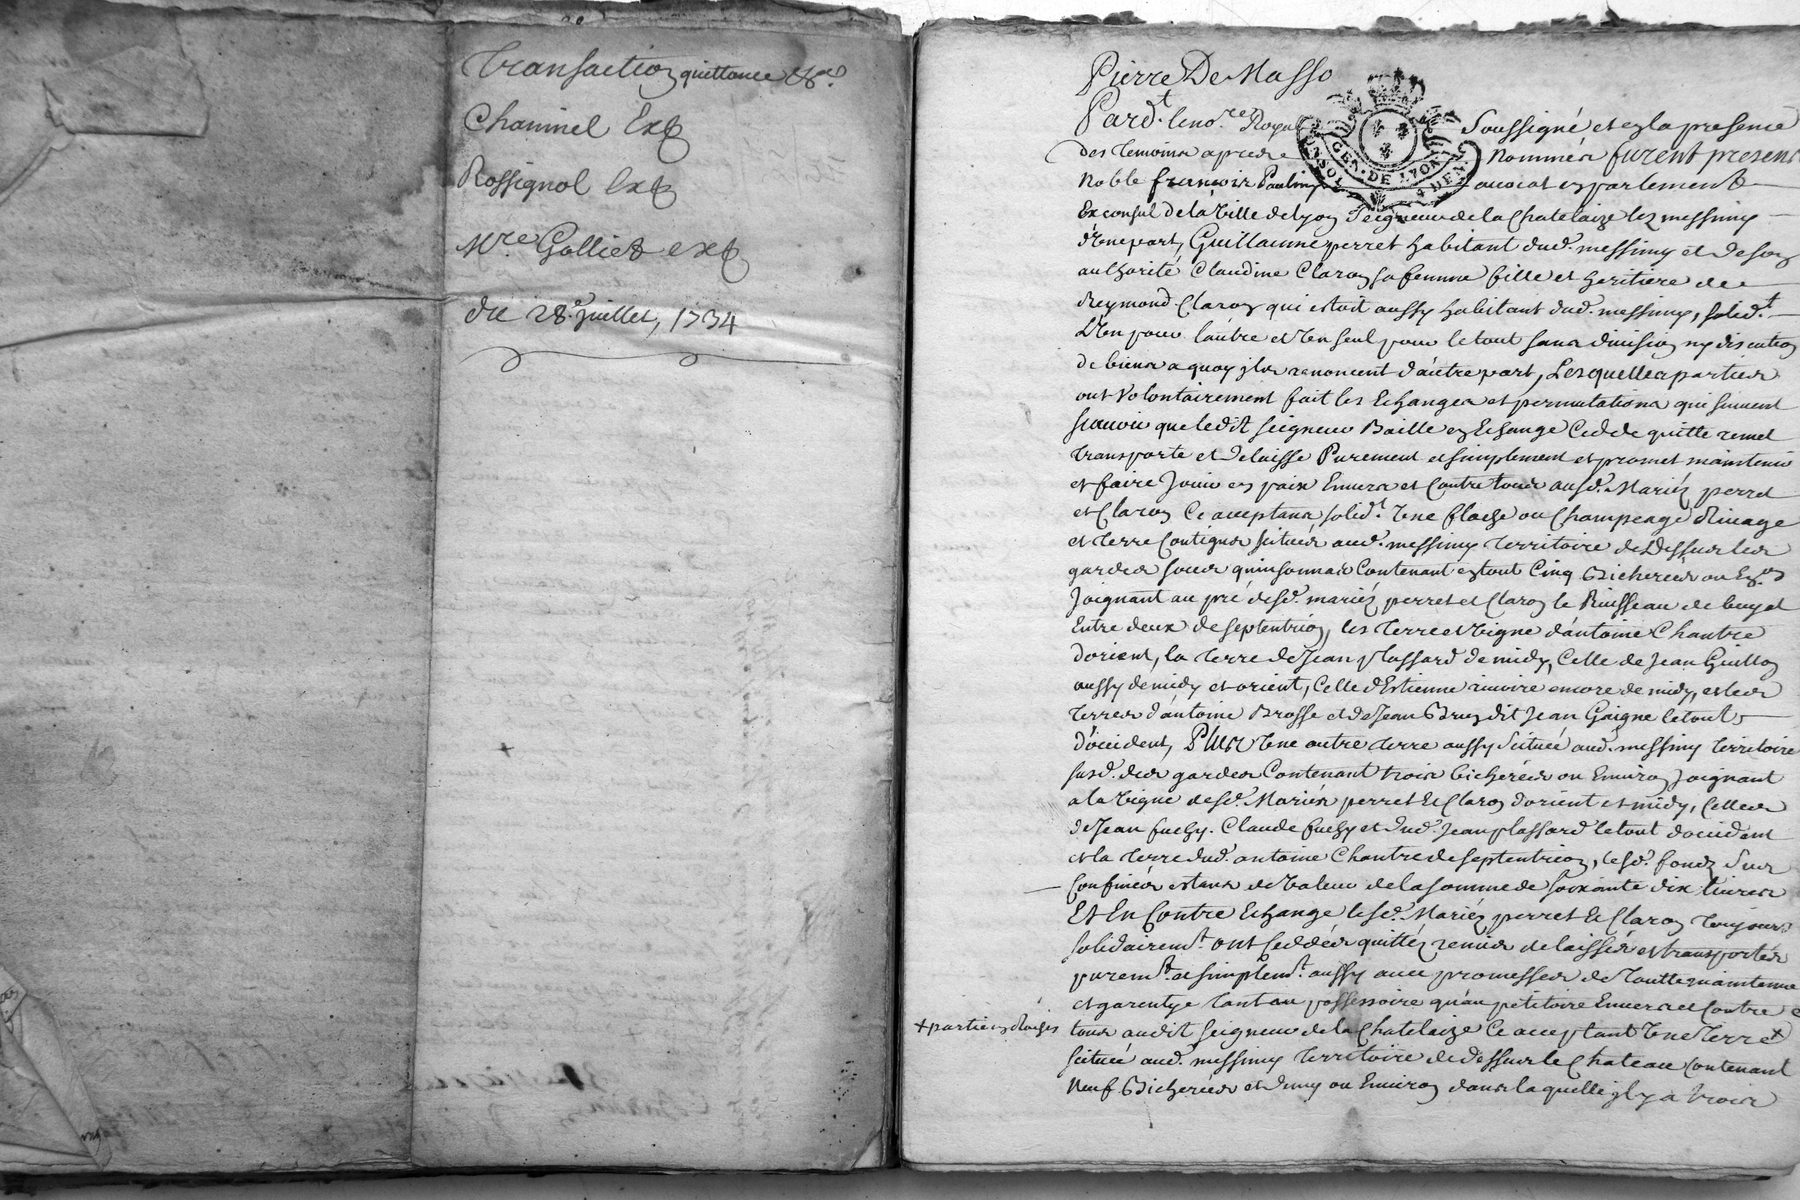 Transaction quittance &a.
Chaninel Ext
Rossignol Ext
Mre. Galliet ext
du 28e. juillet, 1734
Pierre De Masso
Pard.t le no.re Royal soussigné et en la presence
des temoins apres nommés furent presens
Noble françois Paulin avocat en parlement
Exconsul de la Ville de Lyon Seigneur de la Chatelaize lez messimy
d'une part, Guillaume perret habitant dud. messimy et de son
authorité Claudine Claron sa femme fille et heritiere de
Reymond Claron qui estoit aussy habitant dud. messimy, solid.t
L'un pour lautre et un seul pour le tout sans division ny discution
de biens a quoy ils renoncent d'autre part, Lesquelles parties
ont Volontairement fait les Echanges et permutations qui suivent
scavoir que ledit seigneur Baille en Echange Cedde quitte remet
transporte et delaisse Purement et simplement et promet maintenir
et faire Jouir en paix Envers et Contre tous ausd. Mariéz perret
et Claron Ce acceptans solid.t Une
et terre Contigus situés aud. messimy territoire de Dessus les
gardes Contenant en tout Cinq Bicherées ou En.on
Joignant au pré desd. mariéz perret et Claron le Ruisseau de
Entre deux de septentrion, les terre et vigne d'antoine Chantre
dorient, la terre de Jean plassard de midy, Celle de Jean Guillon
aussy de midy et orient, Celle d'Estienne rivoire encore de midy, et les
terres d'antoine Brosse et de Jean Brun dit Jean Gaigne le tout
d'occident, Plus Une autre terre aussy Scituée aud. messimy territoire
susd. des gardes Contenant trois bicherées ou Environ, Joignant
a la vigne desd. Mariés perret et Claron dorient et midy, Celles
de Jean fuchy. Claude fuchy et dud. Jean plassard le tout doccident
et la terre dud. antoine Chantre de septentrion, lesd. fonds sus
Confinés estans de valeur de la somme de soixante dix livres
Et En Contre Echange lesd. Mariéz perret et Claron toujours
solidairem.t ont Ceddés quittéz remis delaissés et transportés
purem.t et simplem.t aussy avec promesses de toutte maintenue
et garentye tant au possessoire qu'au petitoire Envers et Contre
+ partie en
tous audit seigneur de la Chatelaize Ce acceptant Une terre +
scituée aud. messimy territoire de dessus le Chateau Contenant
Neuf Bicherées et demy ou Environ dans laquelle il y a trois